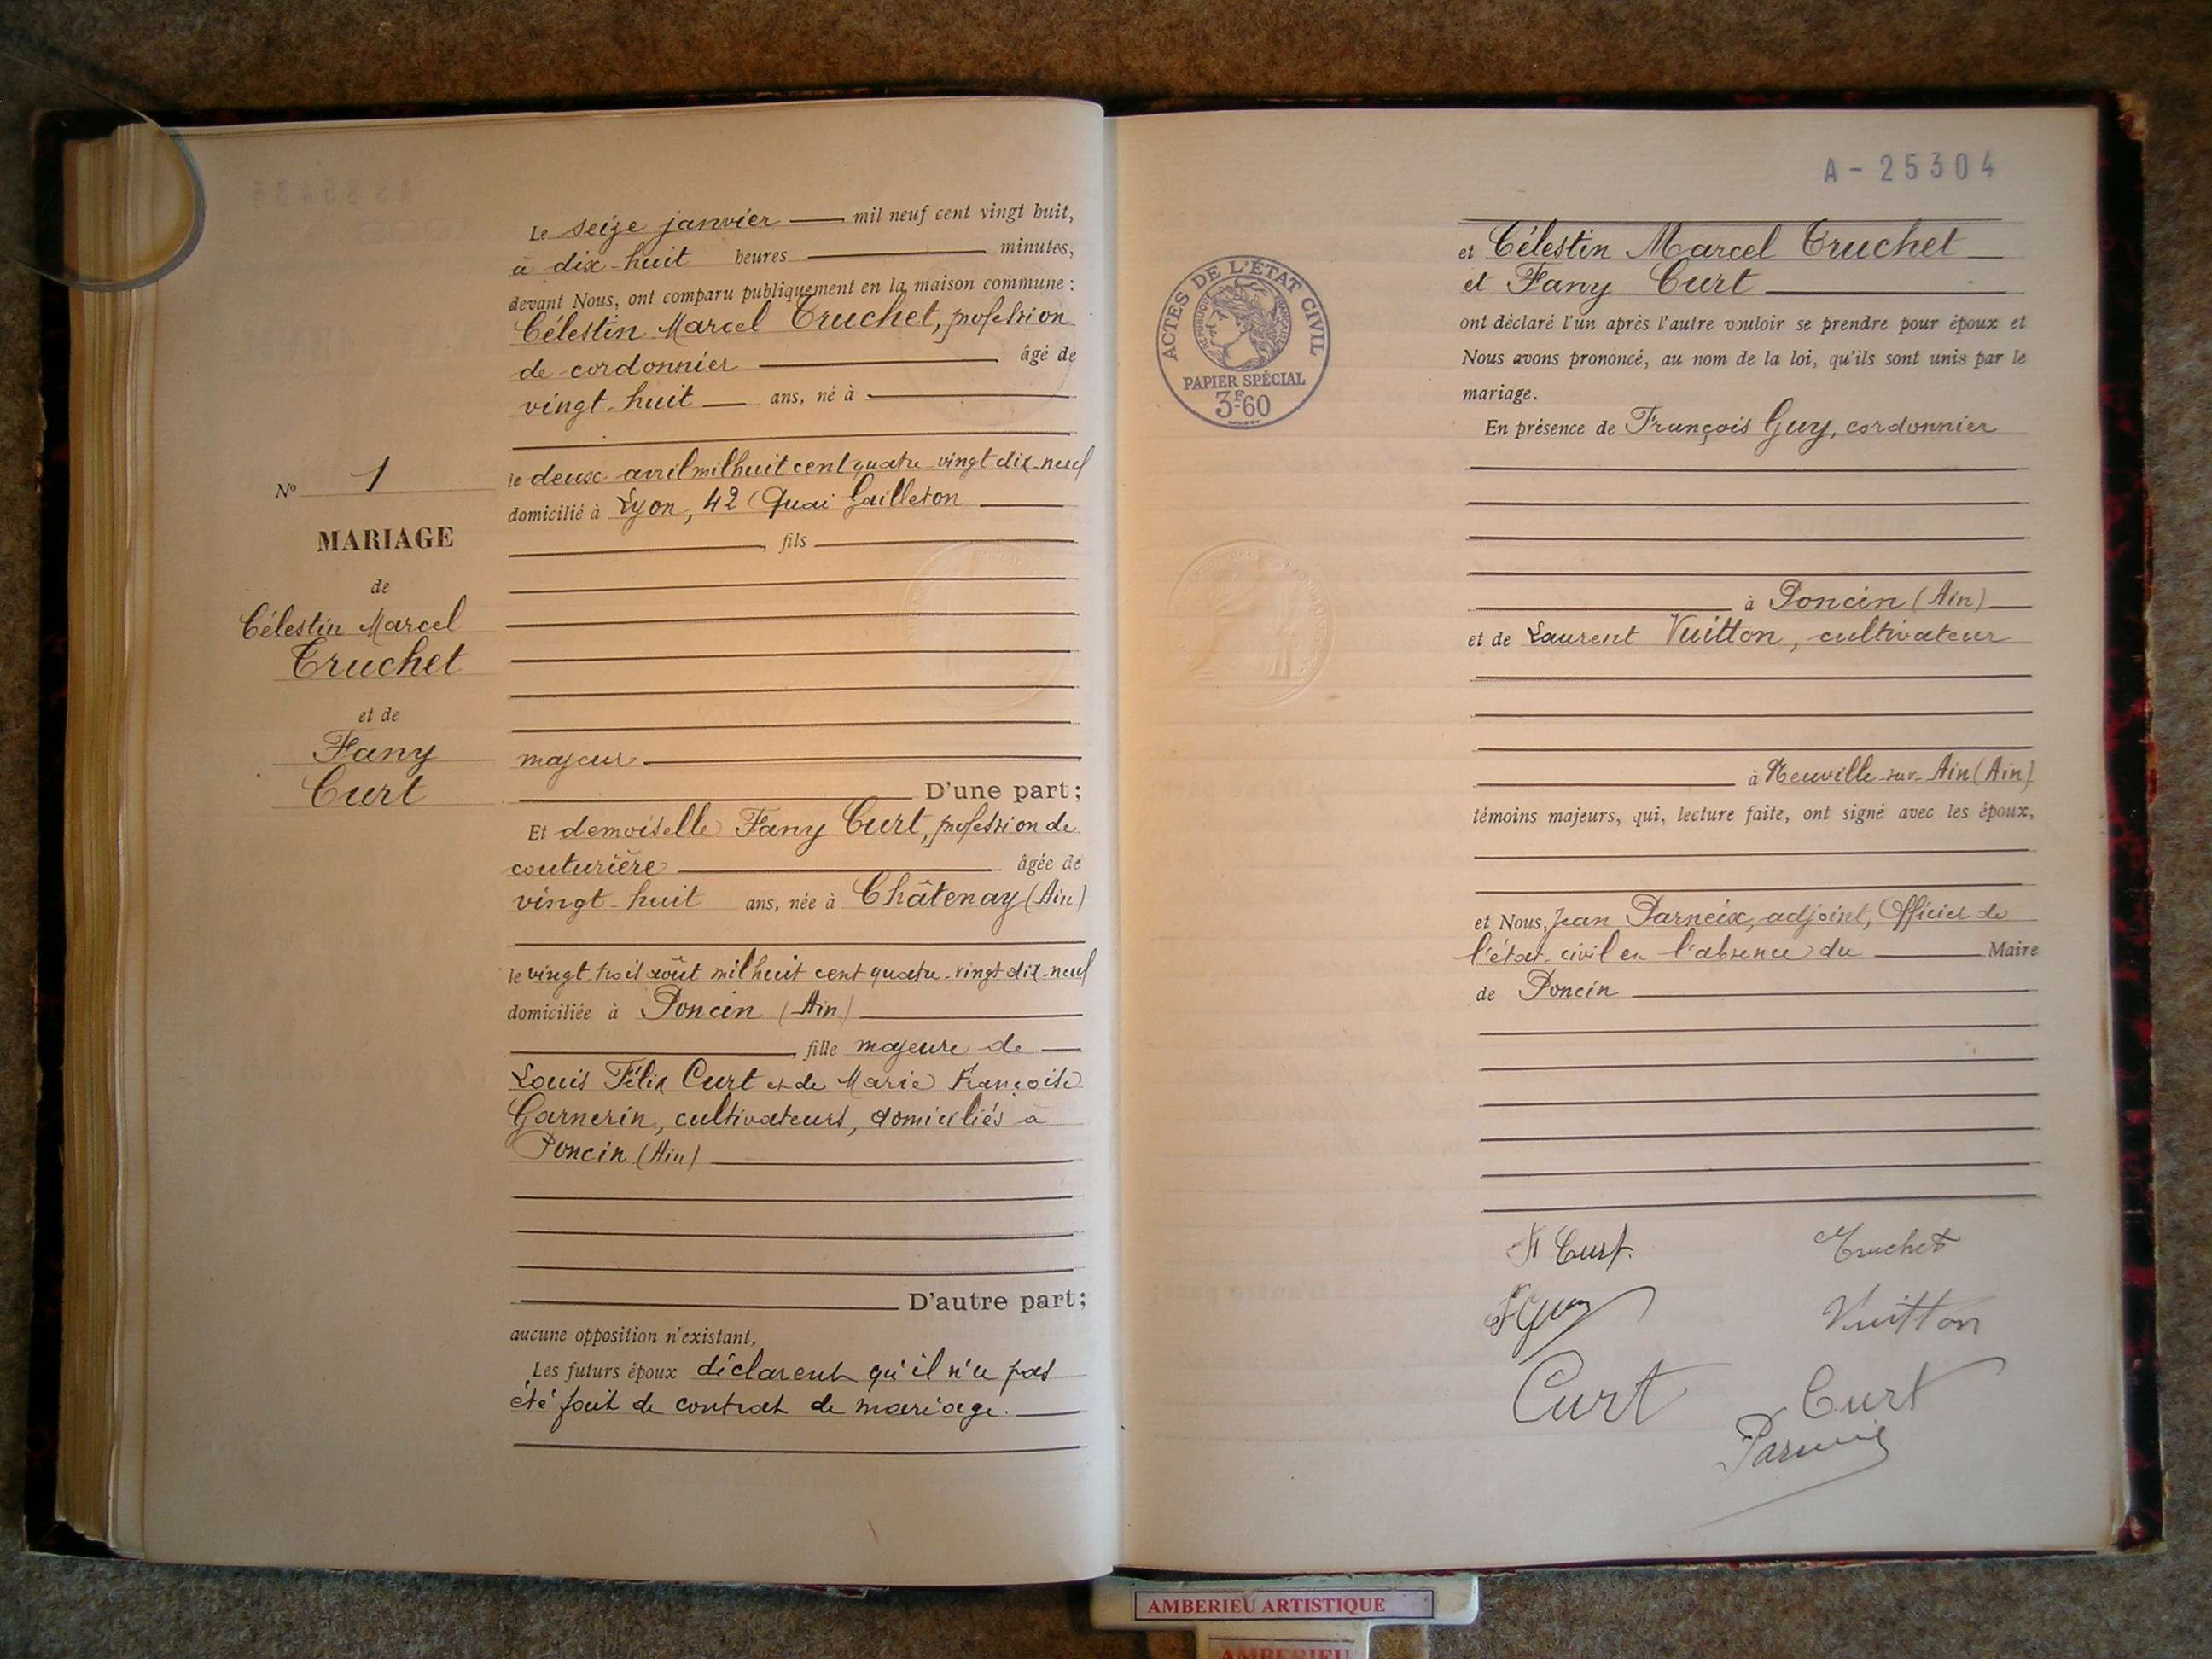 Le seize janvier mil neuf cent vingt huit,
à dix-huit heures minutes,
devant Nous, ont comparu publiquement en la maison commune :
Célestin Marcel Truchet, profession
de cordonnier âgé de
vingt-huit ans, né à
le deux avril mil huit cent quatre vingt dix-neuf
domicilié à Lyon, 42 Quai Gailleton
, fils
majeur
D'une part ;
Et demoiselle Fany Curt, profession de
couturière âgée de
vingt-huit ans, née à Châtenay (Ain)
le vingt-trois août mil huit cent quatre-vingt dix-neuf
domiciliée à Poncin (Ain)
, fille majeure de
Louis Félix Curt et de Marie Françoise
Garnerin, cultivateurs, domiciliés à
Poncin (Ain)
D'autre part ;
aucune opposition n'existant,
Les futurs époux déclarent qu'il n'a pas
été fait de contrat de mariage.
N° 1
MARIAGE
de
Célestin Marcel
Truchet
et de
Fany
Curt
A - 25304
ACTES DE L'ÉTAT CIVIL
RÉPUBLIQUE FRANÇAISE
PAPIER SPÉCIAL
3F.60
et Célestin Marcel Truchet
et Fany Curt
ont déclaré l'un après l'autre vouloir se prendre pour époux et
Nous avons prononcé, au nom de la loi, qu'ils sont unis par le
mariage.
En présence de François Guy, cordonnier
à Poncin (Ain)
et de Laurent Vuitton, cultivateur
à Neuville-sur-Ain (Ain)
témoins majeurs, qui, lecture faite, ont signé avec les époux,
et Nous, Jean Parneix, adjoint, Officier de
l'état-civil en l'absence du Maire
de Poncin
F Curt. Truchet
F Guy Vuitton
Curt Curt
Parneix
AMBERIEU ARTISTIQUE
AMBERIEU